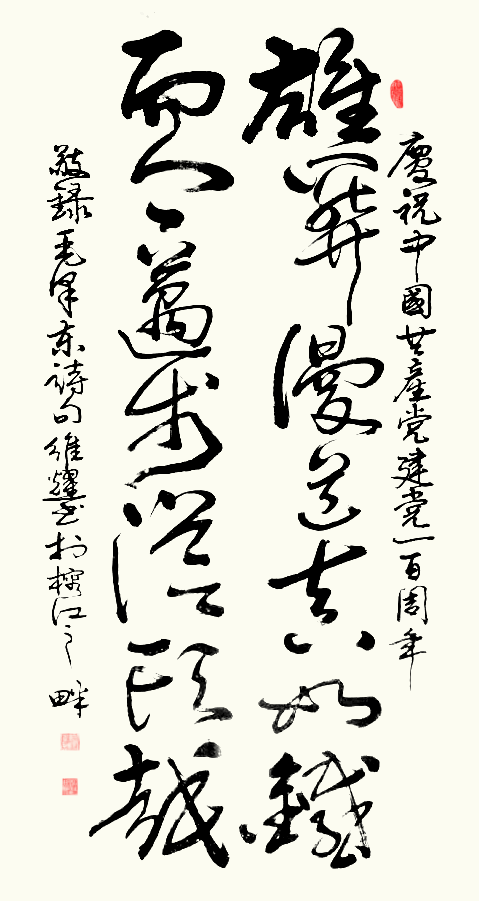 慶祝中國共産党建党一百周年
雄關漫道真如鐵
而今邁步從頭越
敬録毛泽东詩句維耀书於榕江之畔